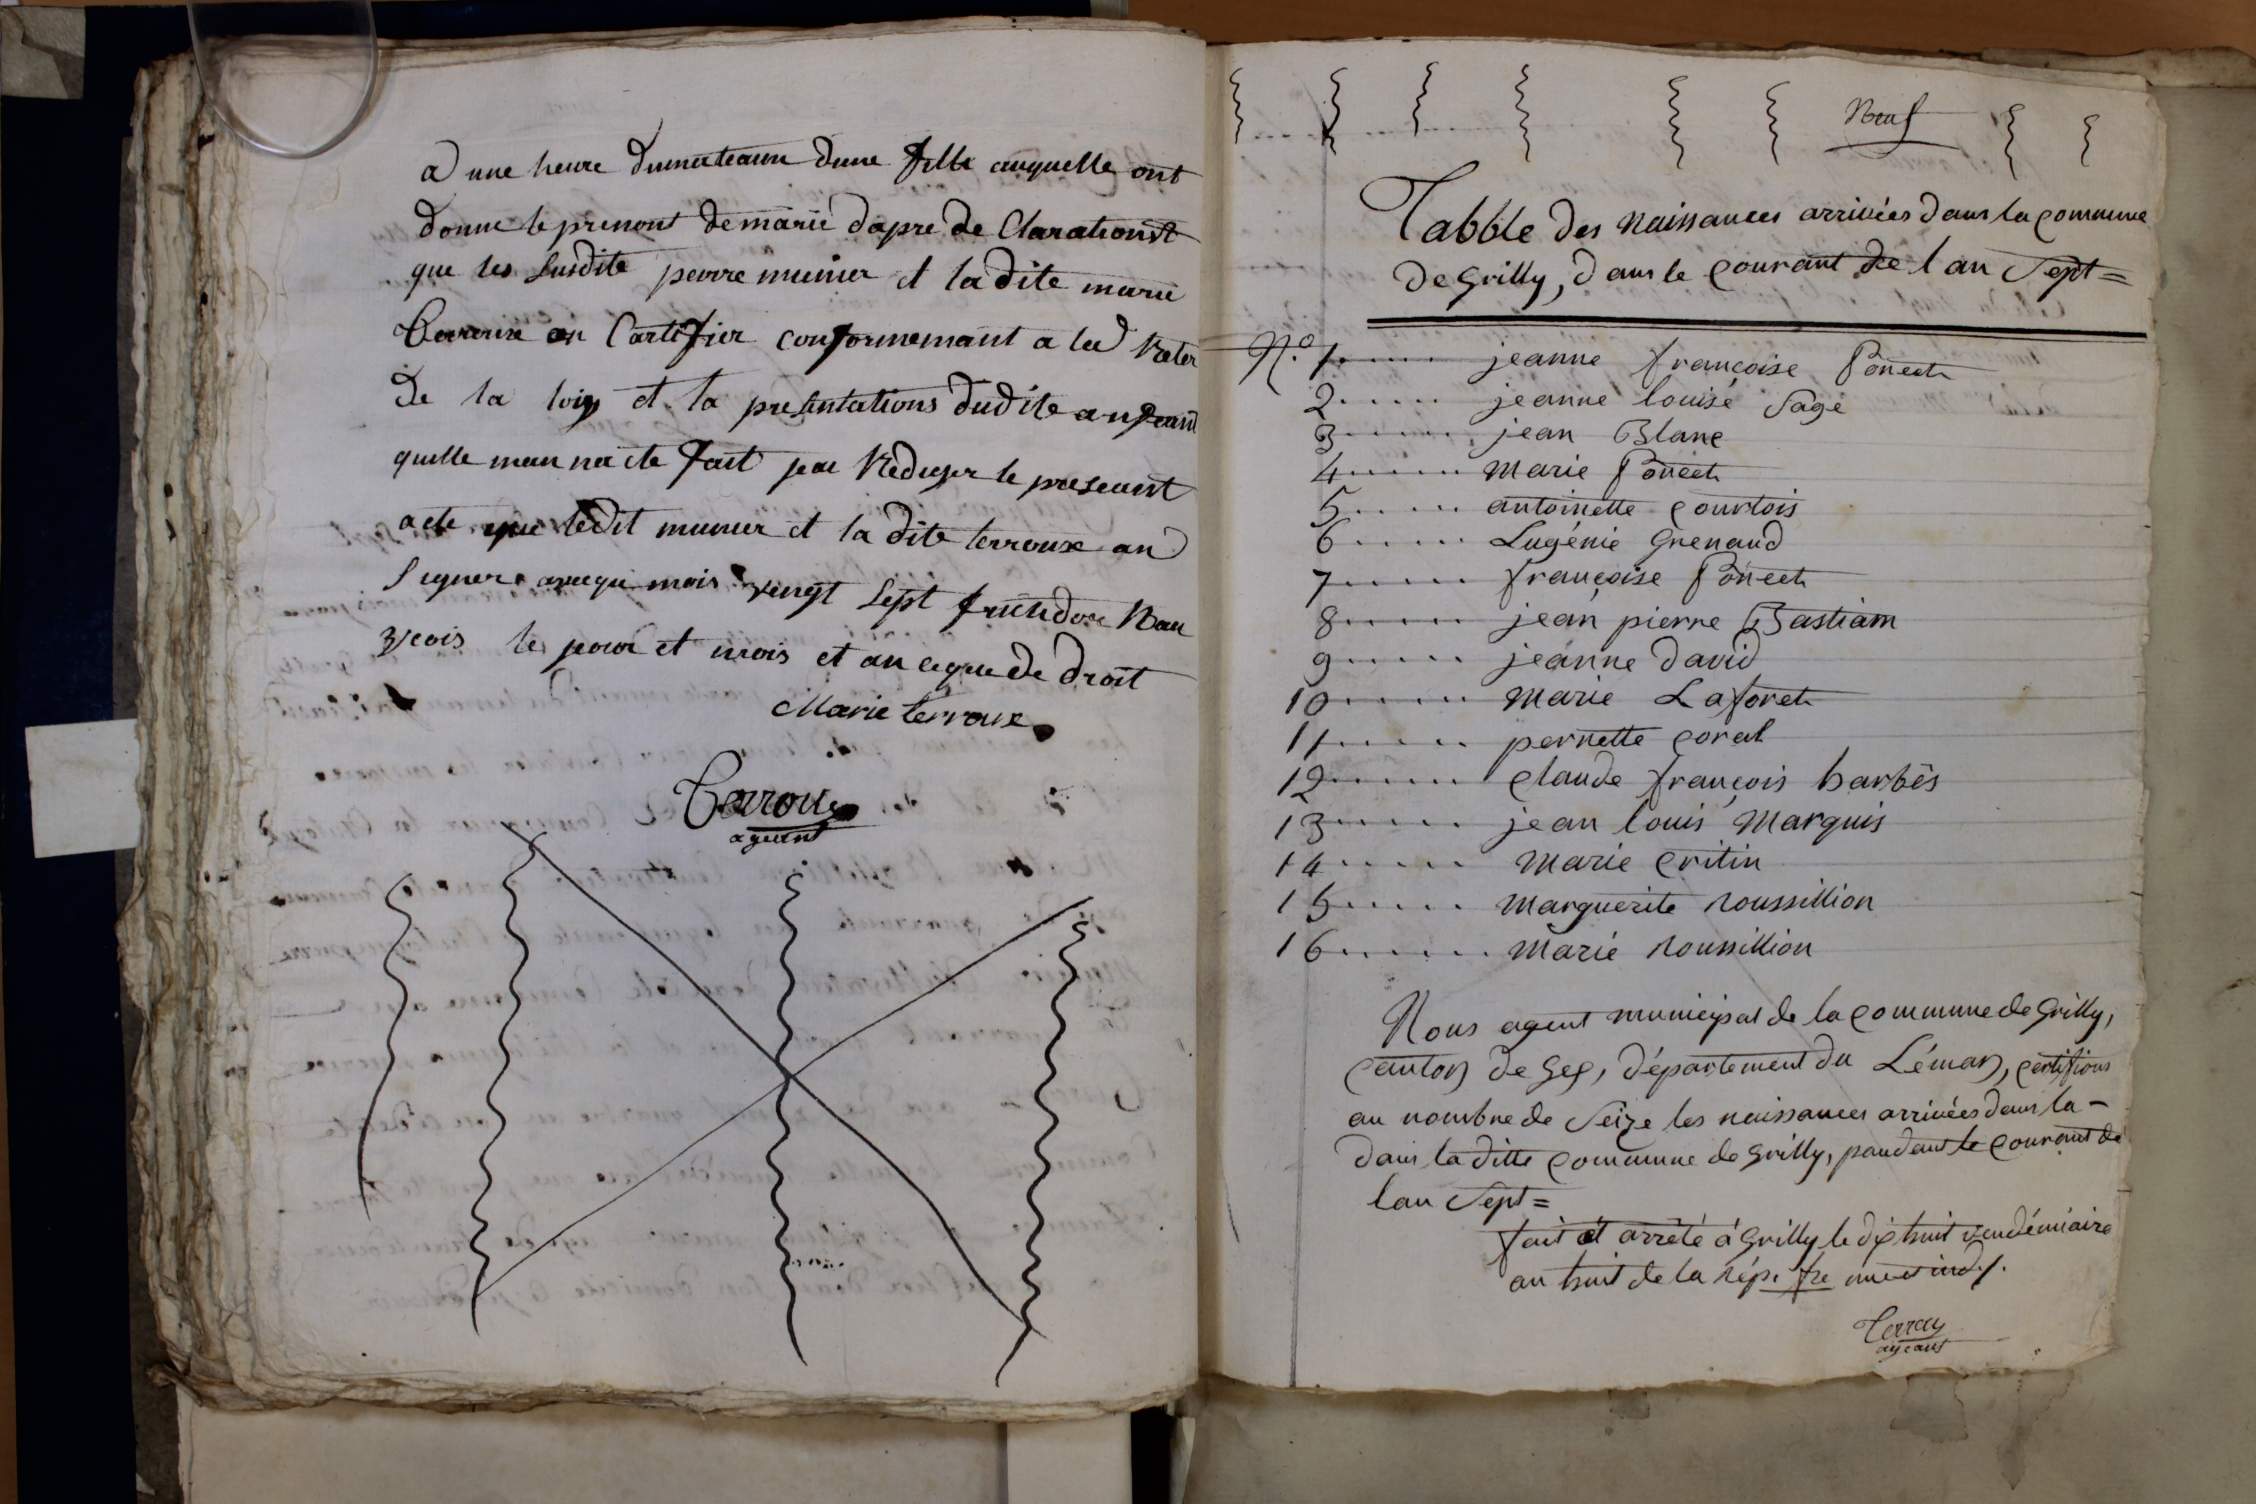 a une heure dumateaun dune fille auquelle ont
donne le prenont de marie dapre de Clarationst
que les susdite pierre munier et la dite marie
Terroux an Cartifier conformemant a la
de la loix et la presantations dudite anfeant
quelle man na ete fait jea Rediger le preseant
acte que ledit munier et la dite terroux an
signer avequi mois vengt sept fruitidore
le jour et mois et an eque de droit
Marie terroux
Terroux
agueant
Neuf
Tabble des Naissances arrivées dans la commune
de Grilly, dans le courant de l'an Sept=
N.º 1...... jeanne françoise Ponect
2...... jeanne louise Sage
3...... jean Blanc
4...... Marie Ponect
5...... antoinette Courtois
6...... Lugénie Grenaud
7...... françoise Ponect
8...... jean pierre Bastiam
9...... jeanne david
10...... Marie Laforet
11...... pernette Coral
12...... Claude françois barbès
13...... jean louis Marquis
14...... Marie Critin
15...... Marguerite Roussillion
16...... Marie Roussillion
Nous agent municipal de la commune de Grilly,
canton de Gex, département du Léman, certifions
au nombre de Seize les naissances arrivées dans la -
dans la ditte commune de Grilly, pandant le courant de
lan Sept=
fait et arrêté à Grilly le dix huit vendémiaire
an huit de la rép. fre une et ind/.
Terroux
ageant